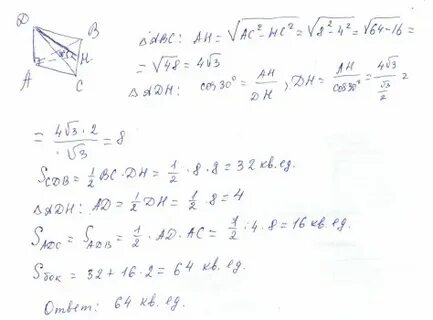 D
B
H
A
C
△ABC: AH = √(AC² − HC²) = √(8² − 4²) = √(64−16) =
= √48 = 4√3
△ADH: cos 30° = AH/DH, DH = AH/cos 30° = 4√3/(√3/2) =
= 4√3 · 2/√3 = 8
S_CDB = 1/2 BC · DH = 1/2 · 8 · 8 = 32 кв. ед.
△ADH: AD = 1/2 DH = 1/2 · 8 = 4
S_ADC = S_ADB = 1/2 · AD · AC = 1/2 · 4 · 8 = 16 кв. ед.
S бок = 32 + 16 · 2 = 64 кв. ед.
Ответ: 64 кв. ед.